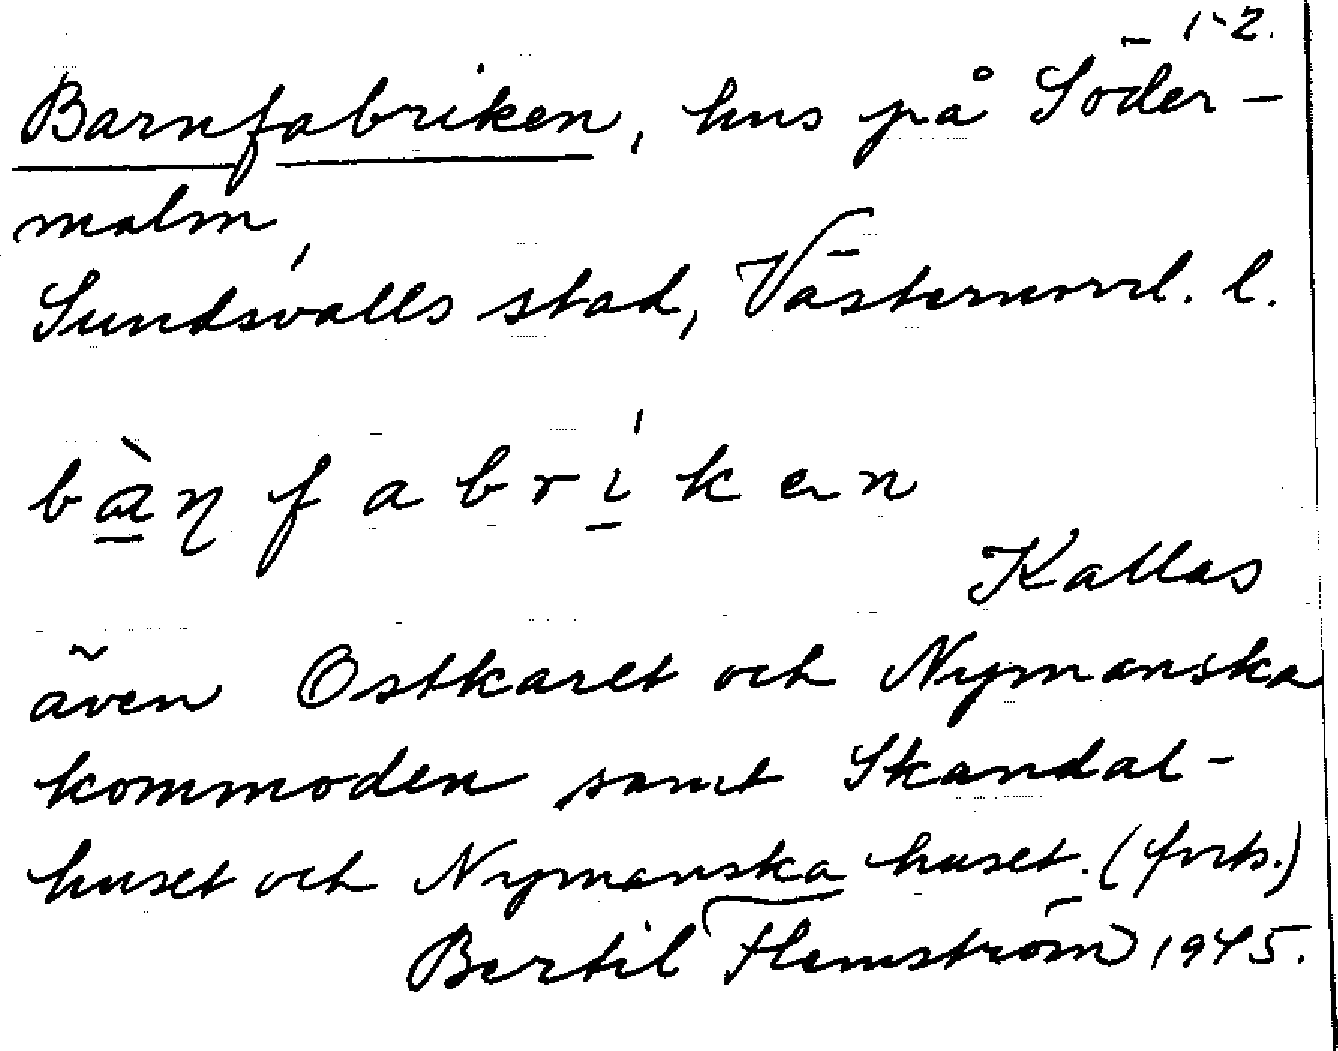 1-2.
Barnfabriken, hus på Söder-
malm,
Sundsvalls stad, Västernorrl. l.
bàŋfabríkən
Kallas
även Ostkaret och Nymanska
kommoden samt Skandal-
huset och Nymanska huset. (forts.)
Bertil Flemström 1945.